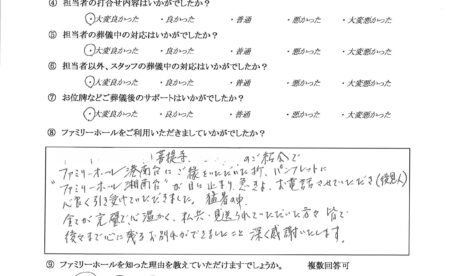 ④ 担当者の打合せ内容はいかがでしたか？
・大変良かった ・良かった ・普通 ・悪かった ・大変悪かった
⑤ 担当者の葬儀中の対応はいかがでしたか？
・大変良かった ・良かった ・普通 ・悪かった ・大変悪かった
⑥ 担当者以外、スタッフの葬儀中の対応はいかがでしたか？
・大変良かった ・良かった ・普通 ・悪かった ・大変悪かった
⑦ お位牌などご葬儀後のサポートはいかがでしたか？
・大変良かった ・良かった ・普通 ・悪かった ・大変悪かった
⑧ ファミリーホールをご利用いただきましていかがでしたか？
菩提寺 のご紹介で
ファミリーホール港南台にご様をいただいた折、パンフレットに
"ファミリーホール湘南台"が目に止まり、急きょ、お電話させていただき
心良く引き受けていただきました。猛暑の中、
全てが完璧で心温かく、私共・見送られていただいた方々皆で
後々まで心に残るお別れができましたこと深く感謝いたします。
⑨ ファミリーホールを知った理由を教えていただけますでしょうか。 複数回答可